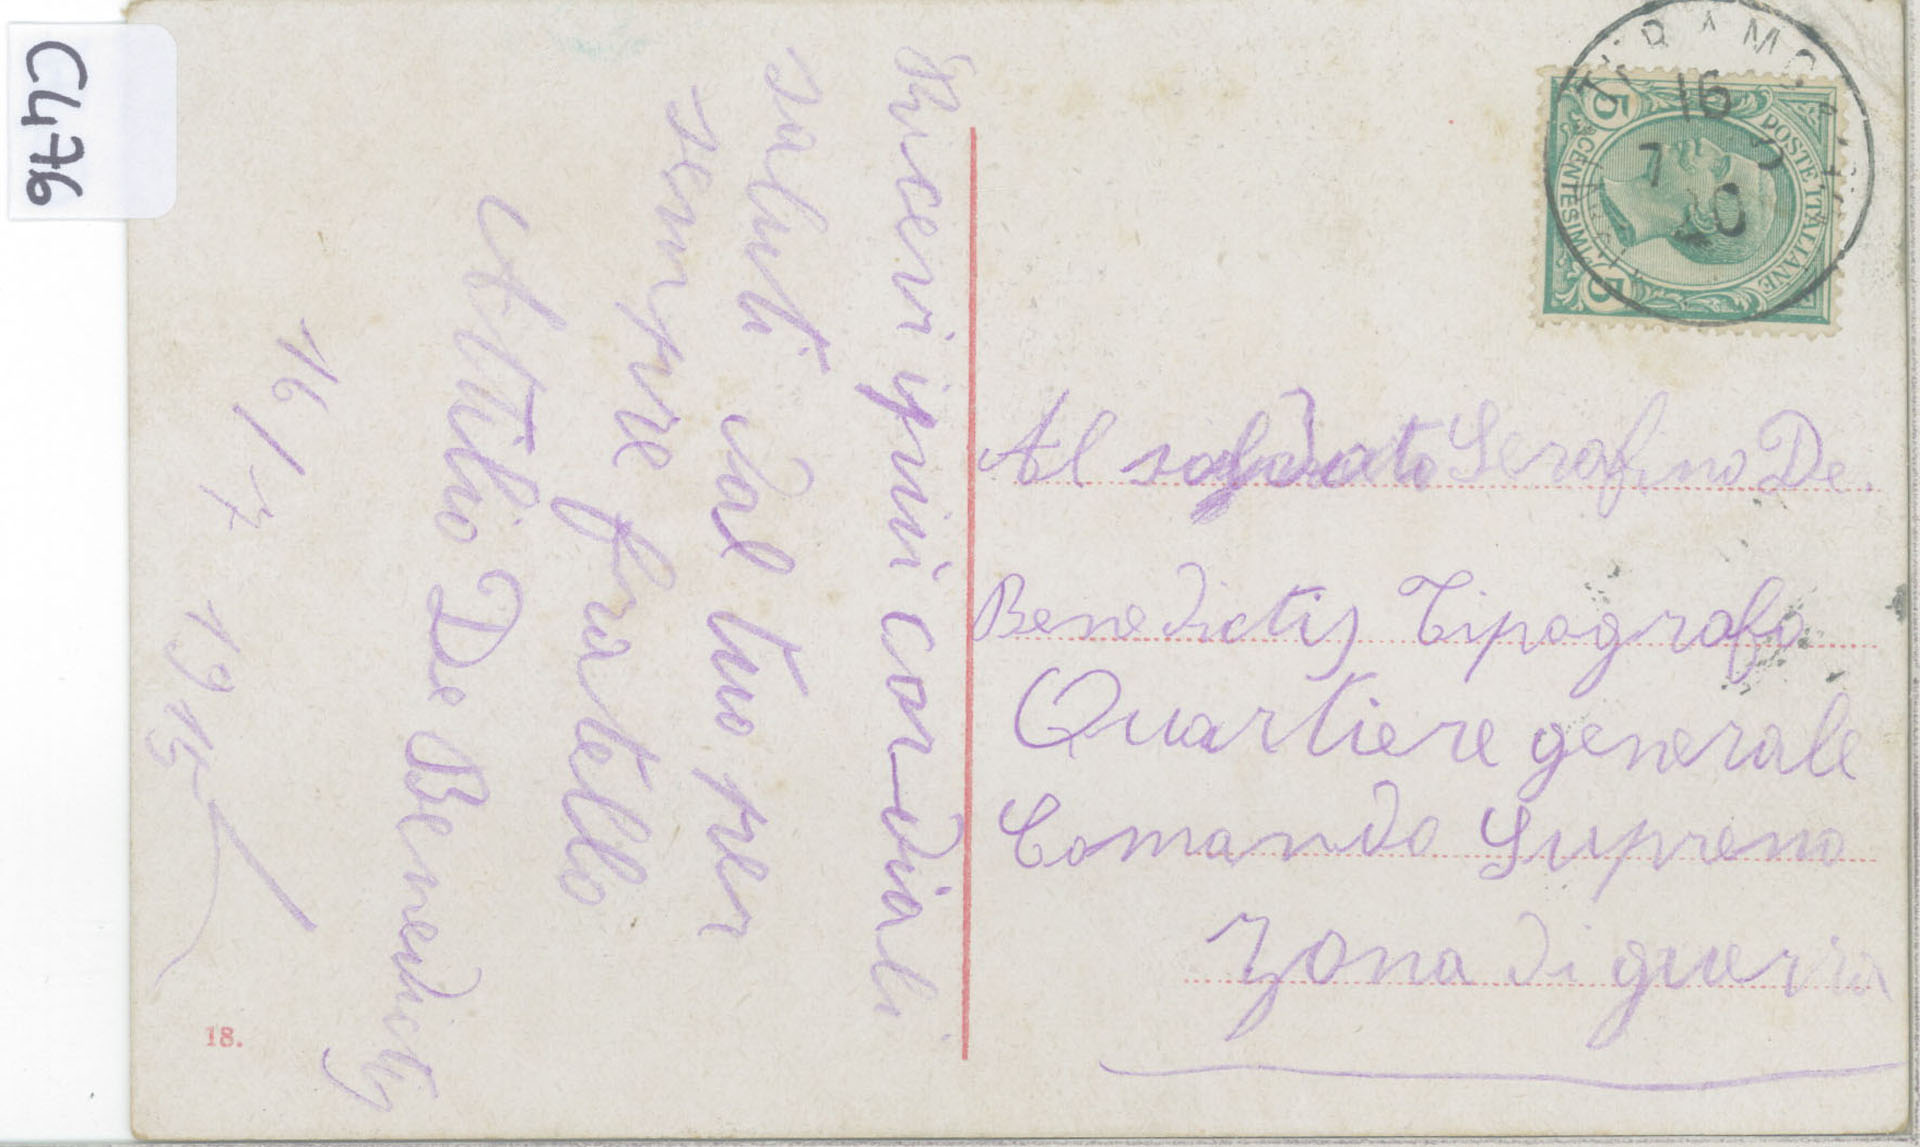 C476
Ricevi i più cordiali
saluti dal tuo per
sempre fratello
Attilio De Benedictis
16/7 1915
18.
TERAMO
16
7
20
POSTE ITALIANE
5 CENTESIMI 5
Al soldato Serafino De
Benedictis Tipografo
Quartiere generale
Comando Supremo
Zona di guerra